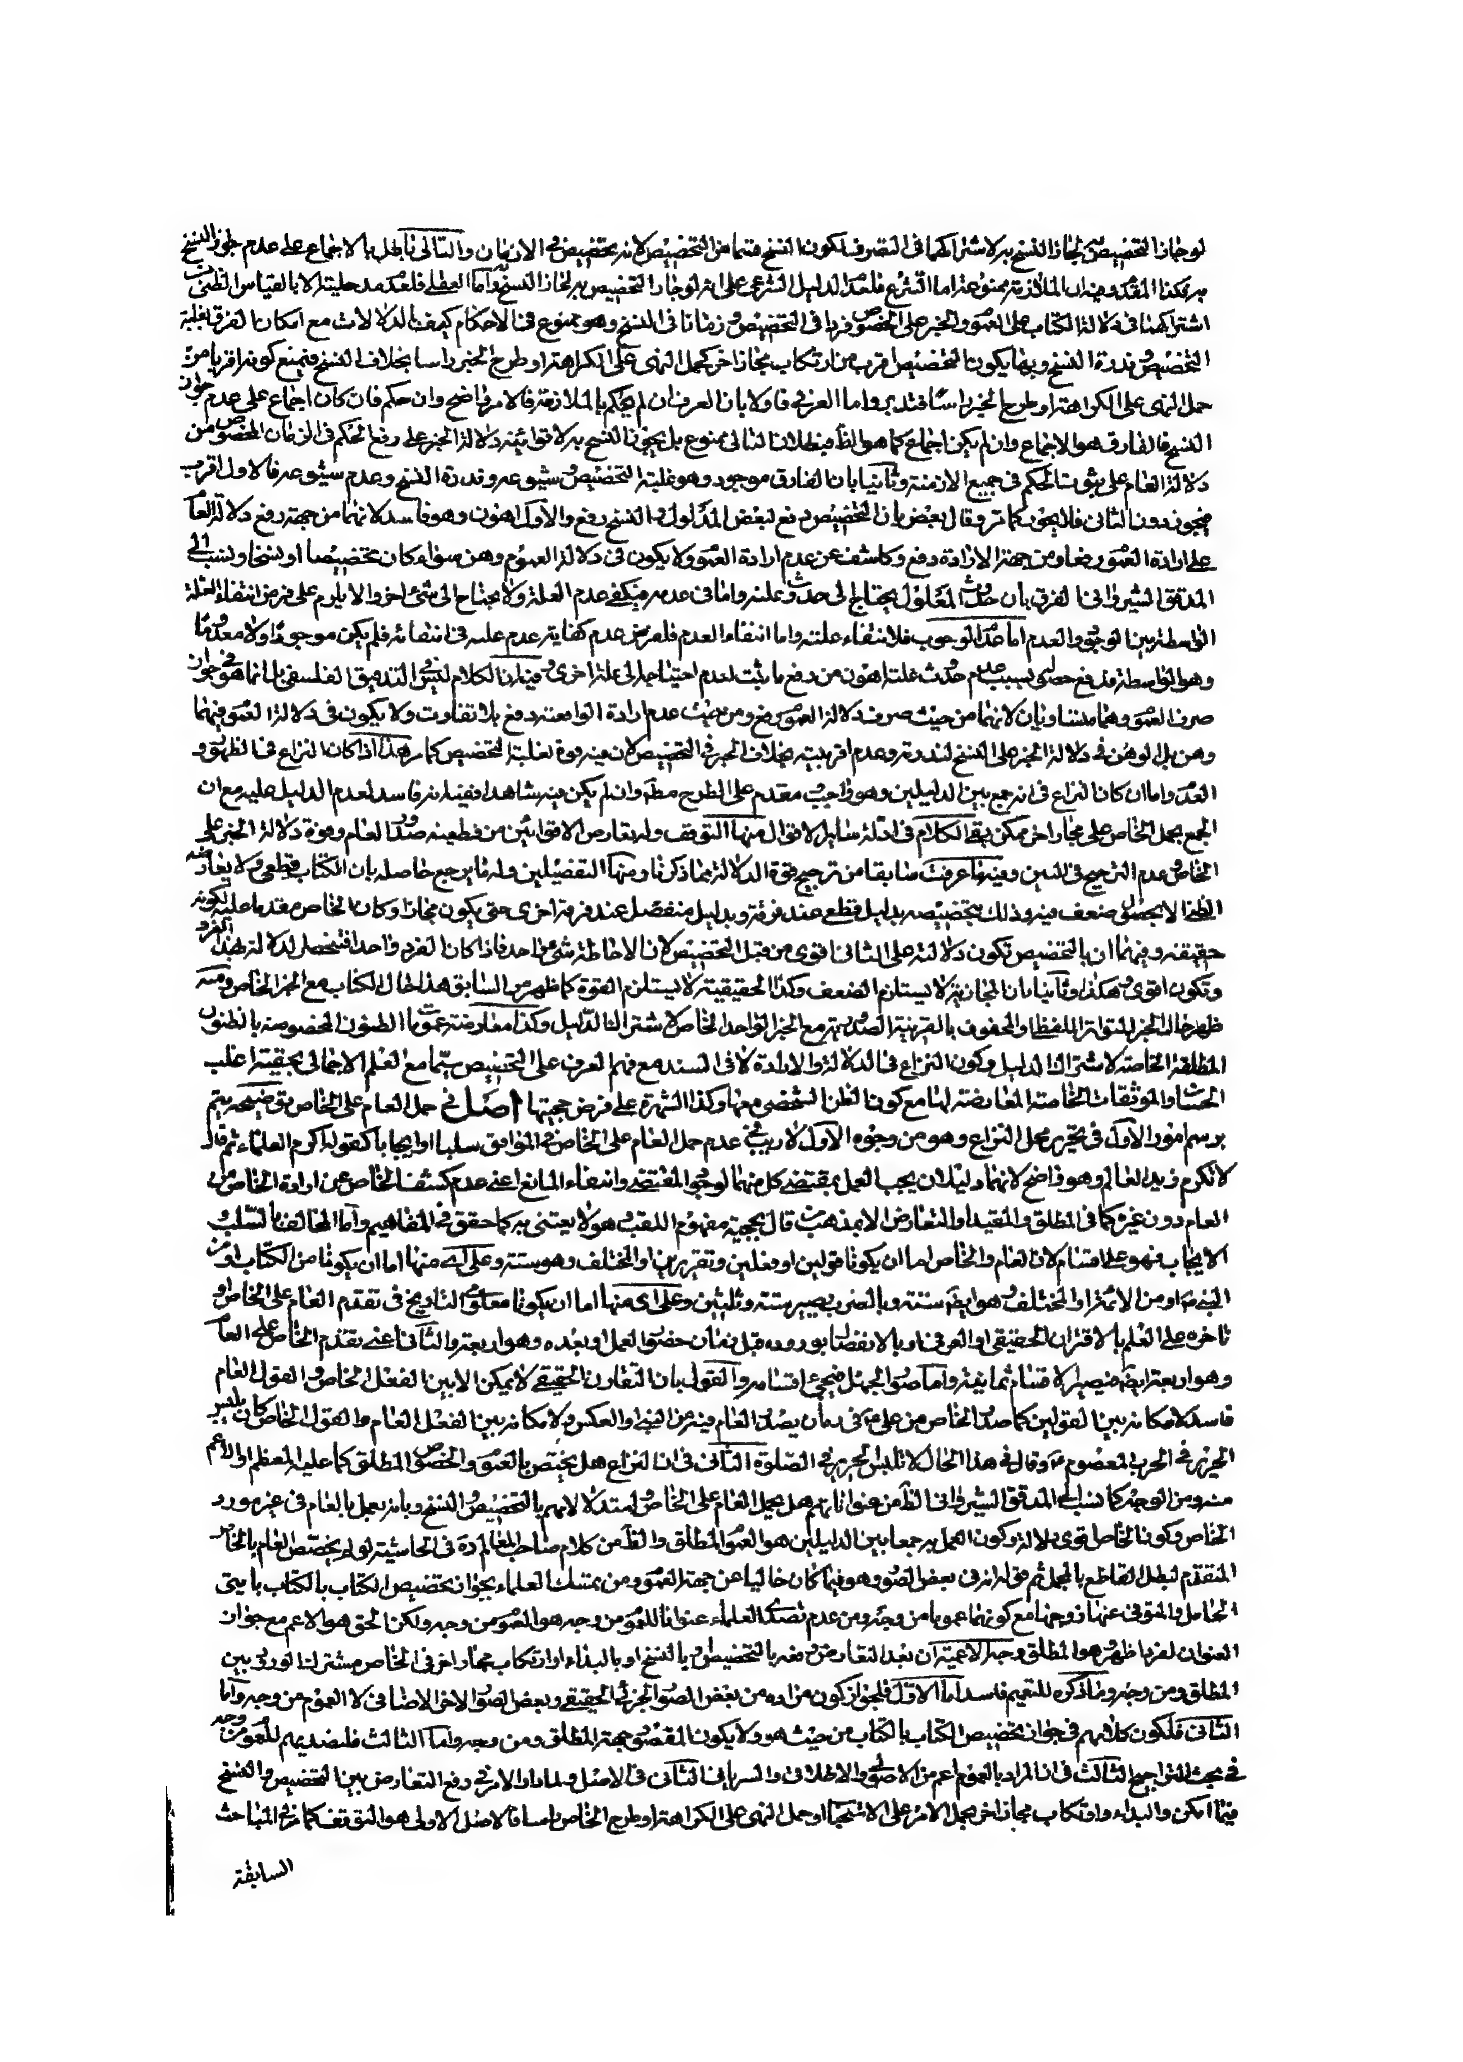 لو جاز التخصيص به لجاز النسخ به لاشتراكهما في التصرف لكون النسخ قسما من التخصيص لانه تخصيص في الازمان والتالي باطل بالاجماع على عدم جواز النسخ
به فكذا المقدم وفيه ان الملازمة ممنوعة اما الشرع فلعدم الدليل الشرعي على انه لو جاز التخصيص به لجاز النسخ به واما العقل فلعدم مدخليته الا بالقياس الظني
اشتراكهما في دلالة الكتاب على العموم والخبر على الخصوص فردا في التخصيص وزمانا في النسخ وهو ممنوع في الاحكام كيف بالدلالات مع امكان الفرق بغلبة
التخصيص وندرة النسخ وبها يكون التخصيص اقرب من ارتكاب مجاز اخر كحمل النهي على الكراهة او طرح الخبر راسا بخلاف النسخ فنمنع كونه اقربا من
حمل النهي على الكراهة او طرح الخبر راسا فتدبر واما العرف فاولا بان العرف ان لم يحكم بالملازمة فالامر واضح وان حكم فان كان اجماع على عدم جواز
النسخ فالفارق هو الاجماع وان لم يكن اجماع كما هو الظ فبطلان التالي ممنوع بل يجوز النسخ به لاقوائية دلالة الخبر على رفع الحكم في الزمان المخصوص من
دلالة العام على ثبوت الحكم في جميع الازمنة وثانيا بان الفارق موجود وهو غلبة التخصيص وشيوعه وندرة النسخ وعدم شيوعه فالاول اقرب
فيجوز دون الثاني فلا يجوز كما مر وقال بعض بان التخصيص دفع لبعض المدلول والنسخ رفع والاول اهون وهو فاسد لانهما من جهة رفع دلالة العام
على ارادة العموم رفع ومن جهة الارادة دفع وكاشف عن عدم ارادة العموم ولا يكون في دلالة العموم وهن سواء كان تخصيصا او نسخا ونسب الى
المدقق الشيرواني الفرق بان حدوث المعلول يحتاج الى حدوث علته واما في عدمه فيكفي عدم العلة ولا يحتاج الى شيء اخر والا يلزم على فرض انتفاء العلة
الواسطة بين الوجود والعدم اما عدم الوجوب فلانتفاء علته واما انتفاء العدم فلفرض عدم كفاية عدم علته في انتفائه فلم يكن موجودا ولا معدوما
وهو الواسطة فدفع حصوله بسبب عدم حدوث علته اهون من رفع ما ثبت لعدم احتياجه الى علة اخرى وفيه ان الكلام ليس في التدقيق الفلسفي بل انما هو في جواز
صرف العموم وهما متساويان لانهما من حيث صرف دلالة العموم رفع ومن حيث عدم ارادة الواقعية دفع بلا تفاوت ولا يكون في دلالة العموم فيهما
وهن بل الوهن في دلالة الخبر على النسخ لندرته وعدم اقربيته بخلاف الخبر في التخصيص لان فيه قوة لغلبة التخصيص كما مر هذا اذا كان النزاع في الظهور و
العدم واما ان كان النزاع في انه جمع بين الدليلين وهو واجب ومقدم على الطرح مط وان لم يكن فيه شاهدا وفيه انه فاسد لعدم الدليل عليه مع ان
الجمع بحمل الخاص على مجاز اخر ممكن بقي الكلام في ادلة سائر الاقوال منها التوقف وله تعارض الاقوائين من قطعية صدور العام وقوة دلالة الخبر على
الخاص وعدم الترجيح في البين وفيه ما عرفت سابقا من ترجيح قوة الدلالة بما ذكرنا ومنها التفصيلين وله ما يرجع حاصله بان الكتاب قطعي ولا يعارضه
الظني الا بحصول ضعف فيه وذلك بتخصيصه بدليل قطعي عند فرقة وبدليل منفصل عند فرقة اخرى حتى يكون مجازا وكان الخاص مقدما عليه لكونه
حقيقة وفيهما ان بالتخصيص تكون دلالته على الثاني اقوى من قبل التخصيص لان الاحاطة شيء واحد فاذا كان الفرد واحدا فتنحصر الدلالة لهذا الفرد
وتكون اقوى وهكذا وثانيا بان المجازية لا يستلزم الضعف وكذا الحقيقية لا يستلزم القوة كما ظهر من السابق هذا حال الكتاب مع الخبر الخاص ومنه
ظهر حال الخبر المتواتر اللفظي والمحفوف بالقرينة الصدورية مع الخبر الواحد الخاص لاشتراك الدليل وكذا معارضة عموم ما الظنون المخصوصة بالظنون
المطلقة الخاصة لاشتراك الدليل وكون النزاع في الدلالة والارادة لا في السند مع فهم العرف على التخصيص سيما مع العلم الاجمالي بحقيقة اغلب
الحسان والموثقات الخاصة المعارضة لها مع كون الظن الشخصي معها وكذا الشهرة على فرض حجيتها اصل في حمل العام على الخاص وتوضيحه يتم
برسم امور الاول في تحرير محل النزاع وهو من وجوه الاول لا ريب في عدم حمل العام على الخاص في الموافق سلبا او ايجابا كقوله اكرم العلماء ثم قال
لا تكرم زيد العالم وهو واضح لانهما دليلان يجب العمل بمقتضى كل منهما لوجود المقتضي وانتفاء المانع اعني عدم كشف الخاص عن ارادة الخاص من
العام دون غيره كما في المطلق والمقيد او التعارض الا بمذهب من قال بحجية مفهوم اللقب وهو لا يعتنى به كما حقق في المفاهيم واما المخالف بالسلب و
الايجاب فهو على اقسام لان العام والخاص اما ان يكونا قولين او فعلين وتقريرين او المختلف وهو ستة وعلى اي منها اما ان يكونا من الكتاب او من
النبي ص او من الائمة او المختلف وهو ايض ستة وبالضرب يصير ستة وثلثين وعلى اي منها اما ان يكونا معلومي التاريخ في تقدم العام على الخاص او
تاخره على العلم بالاقتران الحقيقي او العرفي او بالانفصال بوروده قبل زمان حضور العمل او بعده وهو اربعة والثاني اعني تقدم الخاص على العام
وهو اربعة ايضا فيصير الاقسام ثمانية واما صور الجهل فيجيء اقسامه والقول بان التقارن الحقيقي لا يمكن الا بين الفعل الخاص والقول العام
فاسد لامكانه بين القولين كما صدر الخاص من علي ع في زمان يصدر العام فيه من النبي او العكس ولامكانه بين الفعل العام والقول الخاص كان يلبس
الحرير في الحرب المعصوم ع وقال في هذا الحال لا تلبس الحرير في الصلوة الثاني في ان النزاع هل يختص بالعموم والخصوص المطلق كما عليه المعظم او الاعم
منه ومن الوجه كما نسب الى المدقق الشيرواني الظ من عنواناتهم هل يحمل العام على الخاص واستدلالاتهم بالتخصيص والنسخ وبانه يعمل بالعام في غير مورد
الخاص وكون الخاص اقوى دلالة وكون العمل به جمعا بين الدليلين هو العموم المطلق والظ من كلام صاحب المعالم ره في الحاشية لو لم يختص العام بالخاص
المتقدم لبطل القاطع بالمحتمل ثم قوله انه في بعض الصور وهو فيما كان خاليا عن جهة العموم ومن تمسك العلماء بجواز تخصيص الكتاب بالكتاب بايتي
الحامل والمتوفى عنها زوجها مع كونهما عموما من وجه ومن عدم تصدي العلماء عنوانا للعموم من وجه هو العموم من وجه ولكن الحق هو الاعم مع جواز
العنوان لفرد ما ظهوره هو المطلق وجه الاعمية ان بعد التعارض ودفعه بالتخصيص او بالنسخ او بالبداء او ارتكاب مجاز اخر في الخاص مشترك الورود بين
المطلق ومن وجه وما ذكره للتعميم فاسد اما الاول فلجواز كون مراده من بعض الصور الجزئي الحقيقي وبعض الصور الاخر الاضافي لا العموم من وجه واما
الثاني فلكون كلامهم في جواز تخصيص الكتاب بالكتاب من حيث هو ولا يكون المقصود جهة المطلق ومن وجه واما الثالث فلتصديهم للعموم من وجه
في بحث التراجيح الثالث في ان المراد بالعموم اعم من الاصولي والاطلاقي والسرياني الثاني في الاصل ولما دار الامر في رفع التعارض بين التخصيص والنسخ
فيما امكن والبداء وارتكاب مجاز اخر بحمل الامر على الاستحباب او حمل النهي على الكراهة او طرح الخاص راسا فالاصل الاولي هو التوقف كما مر في المباحث
السابقة